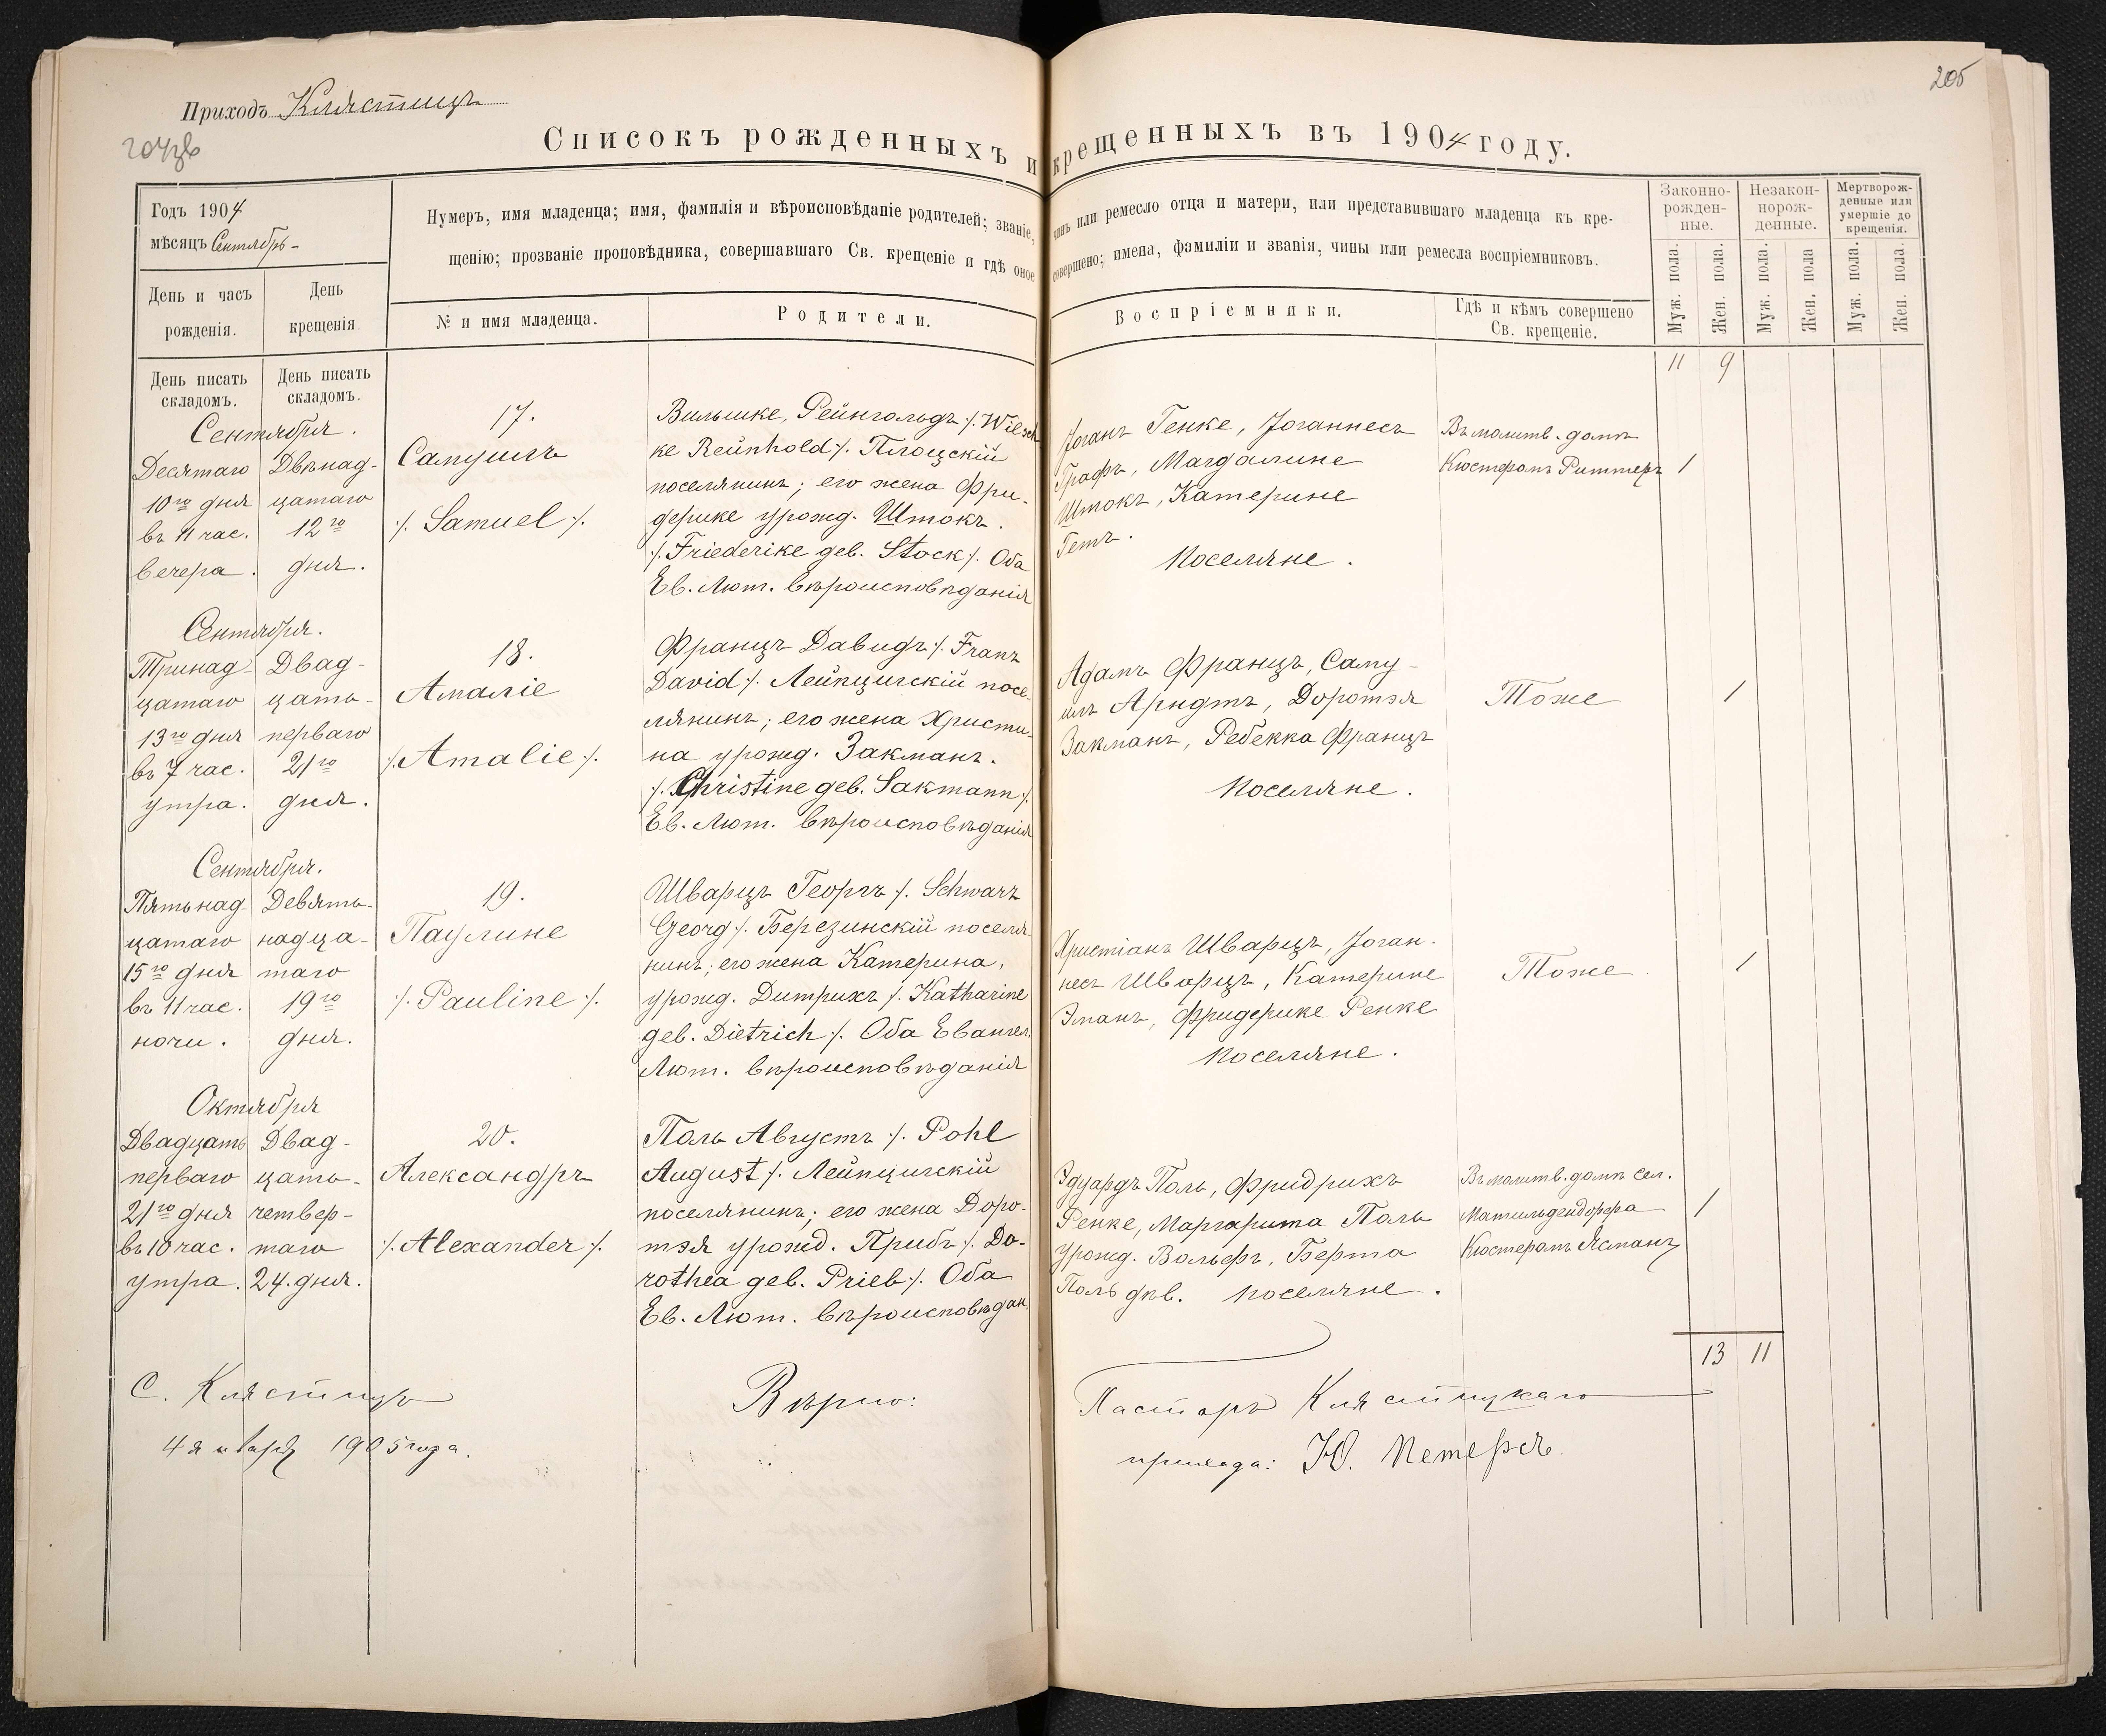 205
Приходъ Клястицъ
Списокъ рожденныхъ и крещенныхъ въ 1904 году.
Годъ 1904
мѣсяцъ Сентябрь
Нумеръ, имя младенца; имя, фамилія и вѣроисповѣданіе родителей; званіе, чинъ или ремесло отца и матери, или представившаго младенца къ кре-
щенію; прозваніе проповѣдника, совершавшаго Св. крещеніе и гдѣ оное совершено; имена, фамиліи и званія, чины или ремесла воспріемниковъ.
Законно-
рожден-
ные.
Незакон-
норож-
денные.
Мертворож-
денные или
умершіе до
крещенія.
День и часъ
рожденія.
День
крещенія
№ и имя младенца.
Родители.
Воспріемники.
Гдѣ и кѣмъ совершено
Св. крещеніе.
Муж. пола.
Жен. пола.
Муж. пола.
Жен. пола
Муж. пола.
Жен. пола.
День писать
складомъ.
День писать
складомъ.
11 9
Сентября.
Десятаго
10го дня
въ 11 час.
вечера.
Двѣнад-
цатаго
12го
дня.
17.
Самуилъ
/. Samuel /.
Вильшке, Рейнгольдъ /. Wilsch
ke Reinhold /. Плоцскій
поселянинъ; его жена Фри-
дерике урожд. Штокъ.
/. Friederike geb. Stock /. Оба
Ев. Лют. вѣроисповѣданія
Іоганъ Генке, Іоганнесъ
Графъ, Магдалине
Штокъ, Катерине
Гетъ.
Поселяне.
Въ молитв. домѣ
Кюстеромъ Риттеръ
1
Сентября.
Тринад-
цатаго
13го дня
въ 7 час.
утра.
Двад-
цать-
перваго
21го
дня.
18.
Амаліе
/. Amalie /.
Францъ Давидъ /. Franz
David /. Лейпцигскій посе-
лянинъ; его жена Христи-
на урожд. Закманъ.
/. Christine geb. Sakmann /.
Ев. Лют. вѣроисповѣданія
Адамъ Францъ, Саму-
илъ Арндтъ, Доротэя
Закманъ, Ребекка Францъ
Поселяне.
Тоже
1
Сентября.
Пятьнад-
цатаго
15го дня
въ 11 час.
ночи.
Девять-
надца-
таго
19го
дня.
19.
Паулине
/. Pauline /.
Шварцъ Георгъ /. Schwarz
Georg /. Березинскій поселя-
нинъ; его жена Катерина,
урожд. Дитрихъ /. Katharine
geb. Dietrich /. Оба Евангел.
Лют. вѣроисповѣданія
Христіанъ Шварцъ, Іоган-
несъ Шварцъ, Катерине
Эманъ, Фридерике Ренке
Поселяне.
Тоже
1
Октября
Двадцать
перваго
21го дня
въ 10 час.
утра.
Двад-
цать-
четвер-
таго
24. дня.
20.
Александръ
/. Alexander /.
Поль Августъ /. Pohl
August /. Лейпцигскій
поселянинъ; его жена Доро-
тэя урожд. Прибъ /. Do-
rothea geb. Prieb /. Оба
Ев. Лют. вѣроисповѣдан.
Эдуардъ Поль, Фридрихъ
Ренке, Маргарита Поль
урожд. Вольфъ, Берта
Поль дѣв. поселяне.
Въ молитв. домѣ сел.
Матильдендорфа
Кюстеромъ Ясманъ
1
13 11
С. Клястицъ
4 января 1905 года.
Вѣрно:
Пасторъ Клястицкаго
прихода: Ю. Петерсъ.